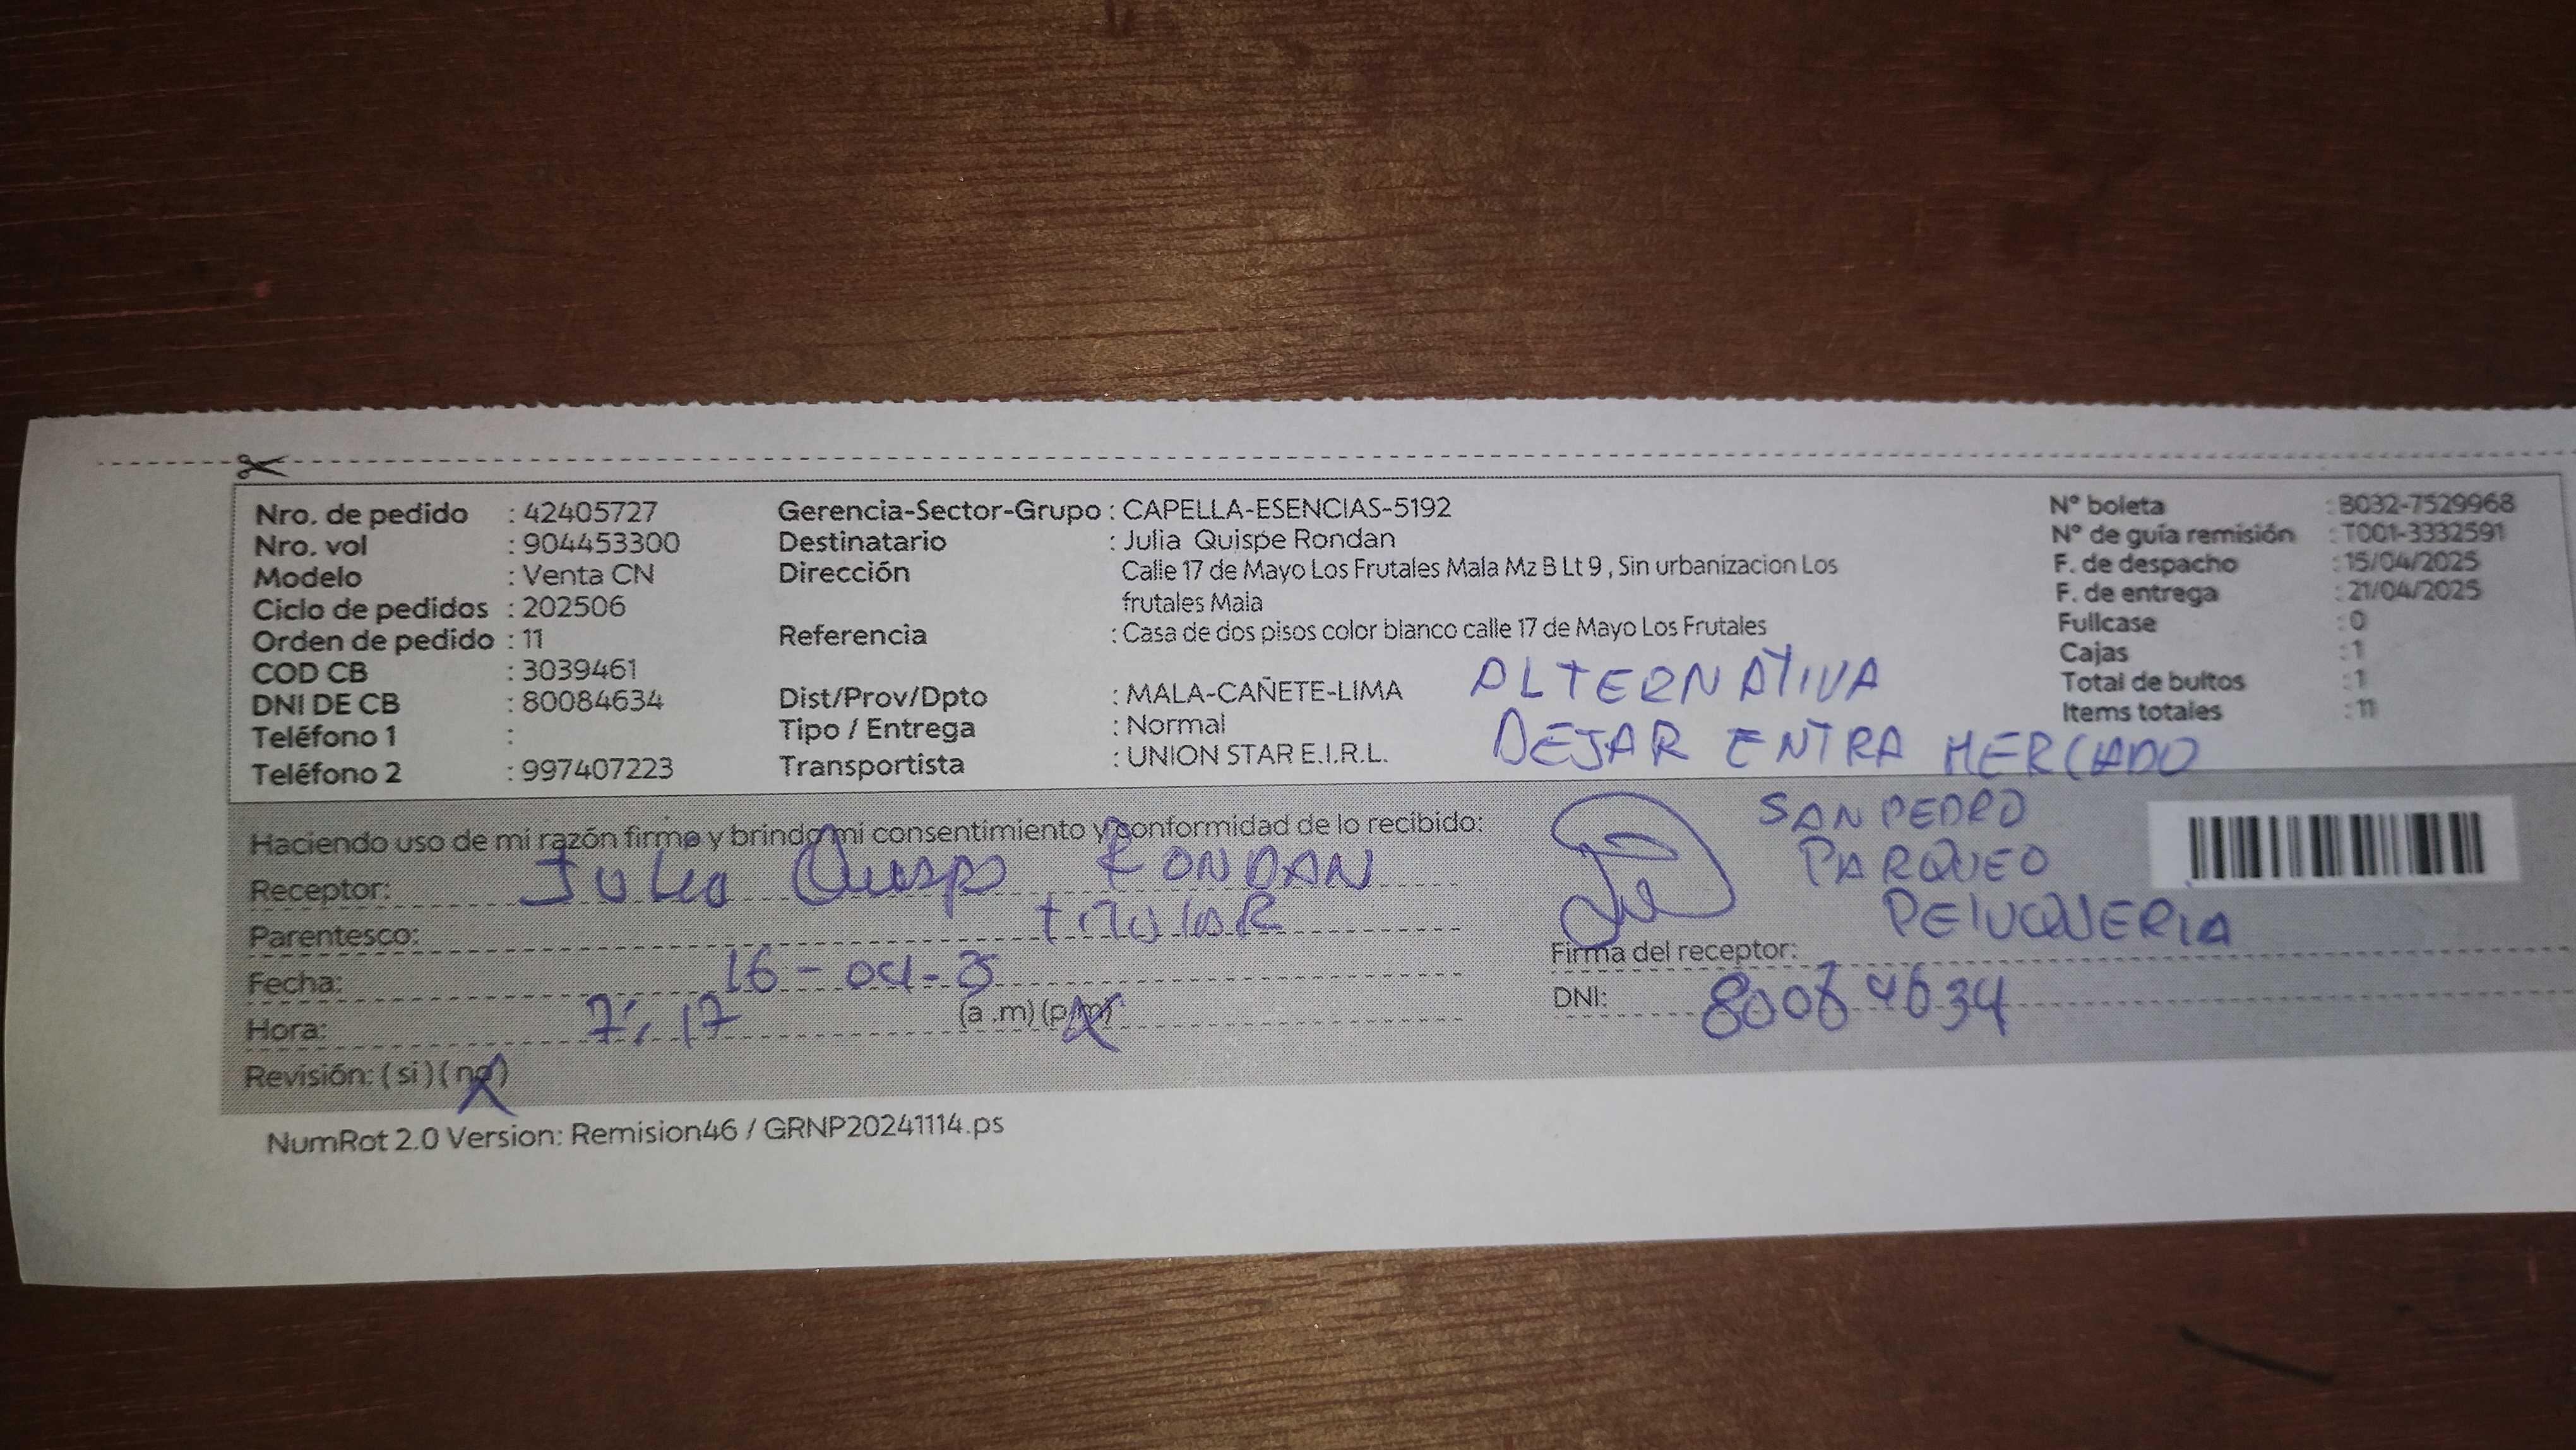 Nro. de pedido : 42405727
Nro. vol : 904453300
Modelo : Venta CN
Ciclo de pedidos : 202506
Orden de pedido : 11
COD CB : 3039461
DNI DE CB : 80084634
Teléfono 1 :
Teléfono 2 : 997407223
Gerencia-Sector-Grupo : CAPELLA-ESENCIAS-5192
Destinatario : Julia Quispe Rondan
Dirección Calle 17 de Mayo Los Frutales Mala Mz B Lt 9 , Sin urbanizacion Los
frutales Mala
Referencia : Casa de dos pisos color blanco calle 17 de Mayo Los Frutales
Dist/Prov/Dpto : MALA-CAÑETE-LIMA
Tipo / Entrega : Normal
Transportista : UNION STAR E.I.R.L.
N° boleta : B032-7529968
N° de guía remisión : T001-3332591
F. de despacho : 15/04/2025
F. de entrega : 21/04/2025
Fullcase : 0
Cajas : 1
Total de bultos : 1
Items totales : 11
ALTERNATIVA
DEJAR ENTRA MERCADO
SAN PEDRO
PARQUEO
PELUQUERIA
Haciendo uso de mi razón firmo y brindo mi consentimiento y conformidad de lo recibido:
Receptor: Julia Quispe RONDAN
Parentesco: titular
Fecha: 16-04-25
Hora: 7:17 (a .m) (p.m)
Revisión: (si) (no)
Firma del receptor:
DNI: 80084634
NumRot 2.0 Version: Remision46 / GRNP20241114.ps